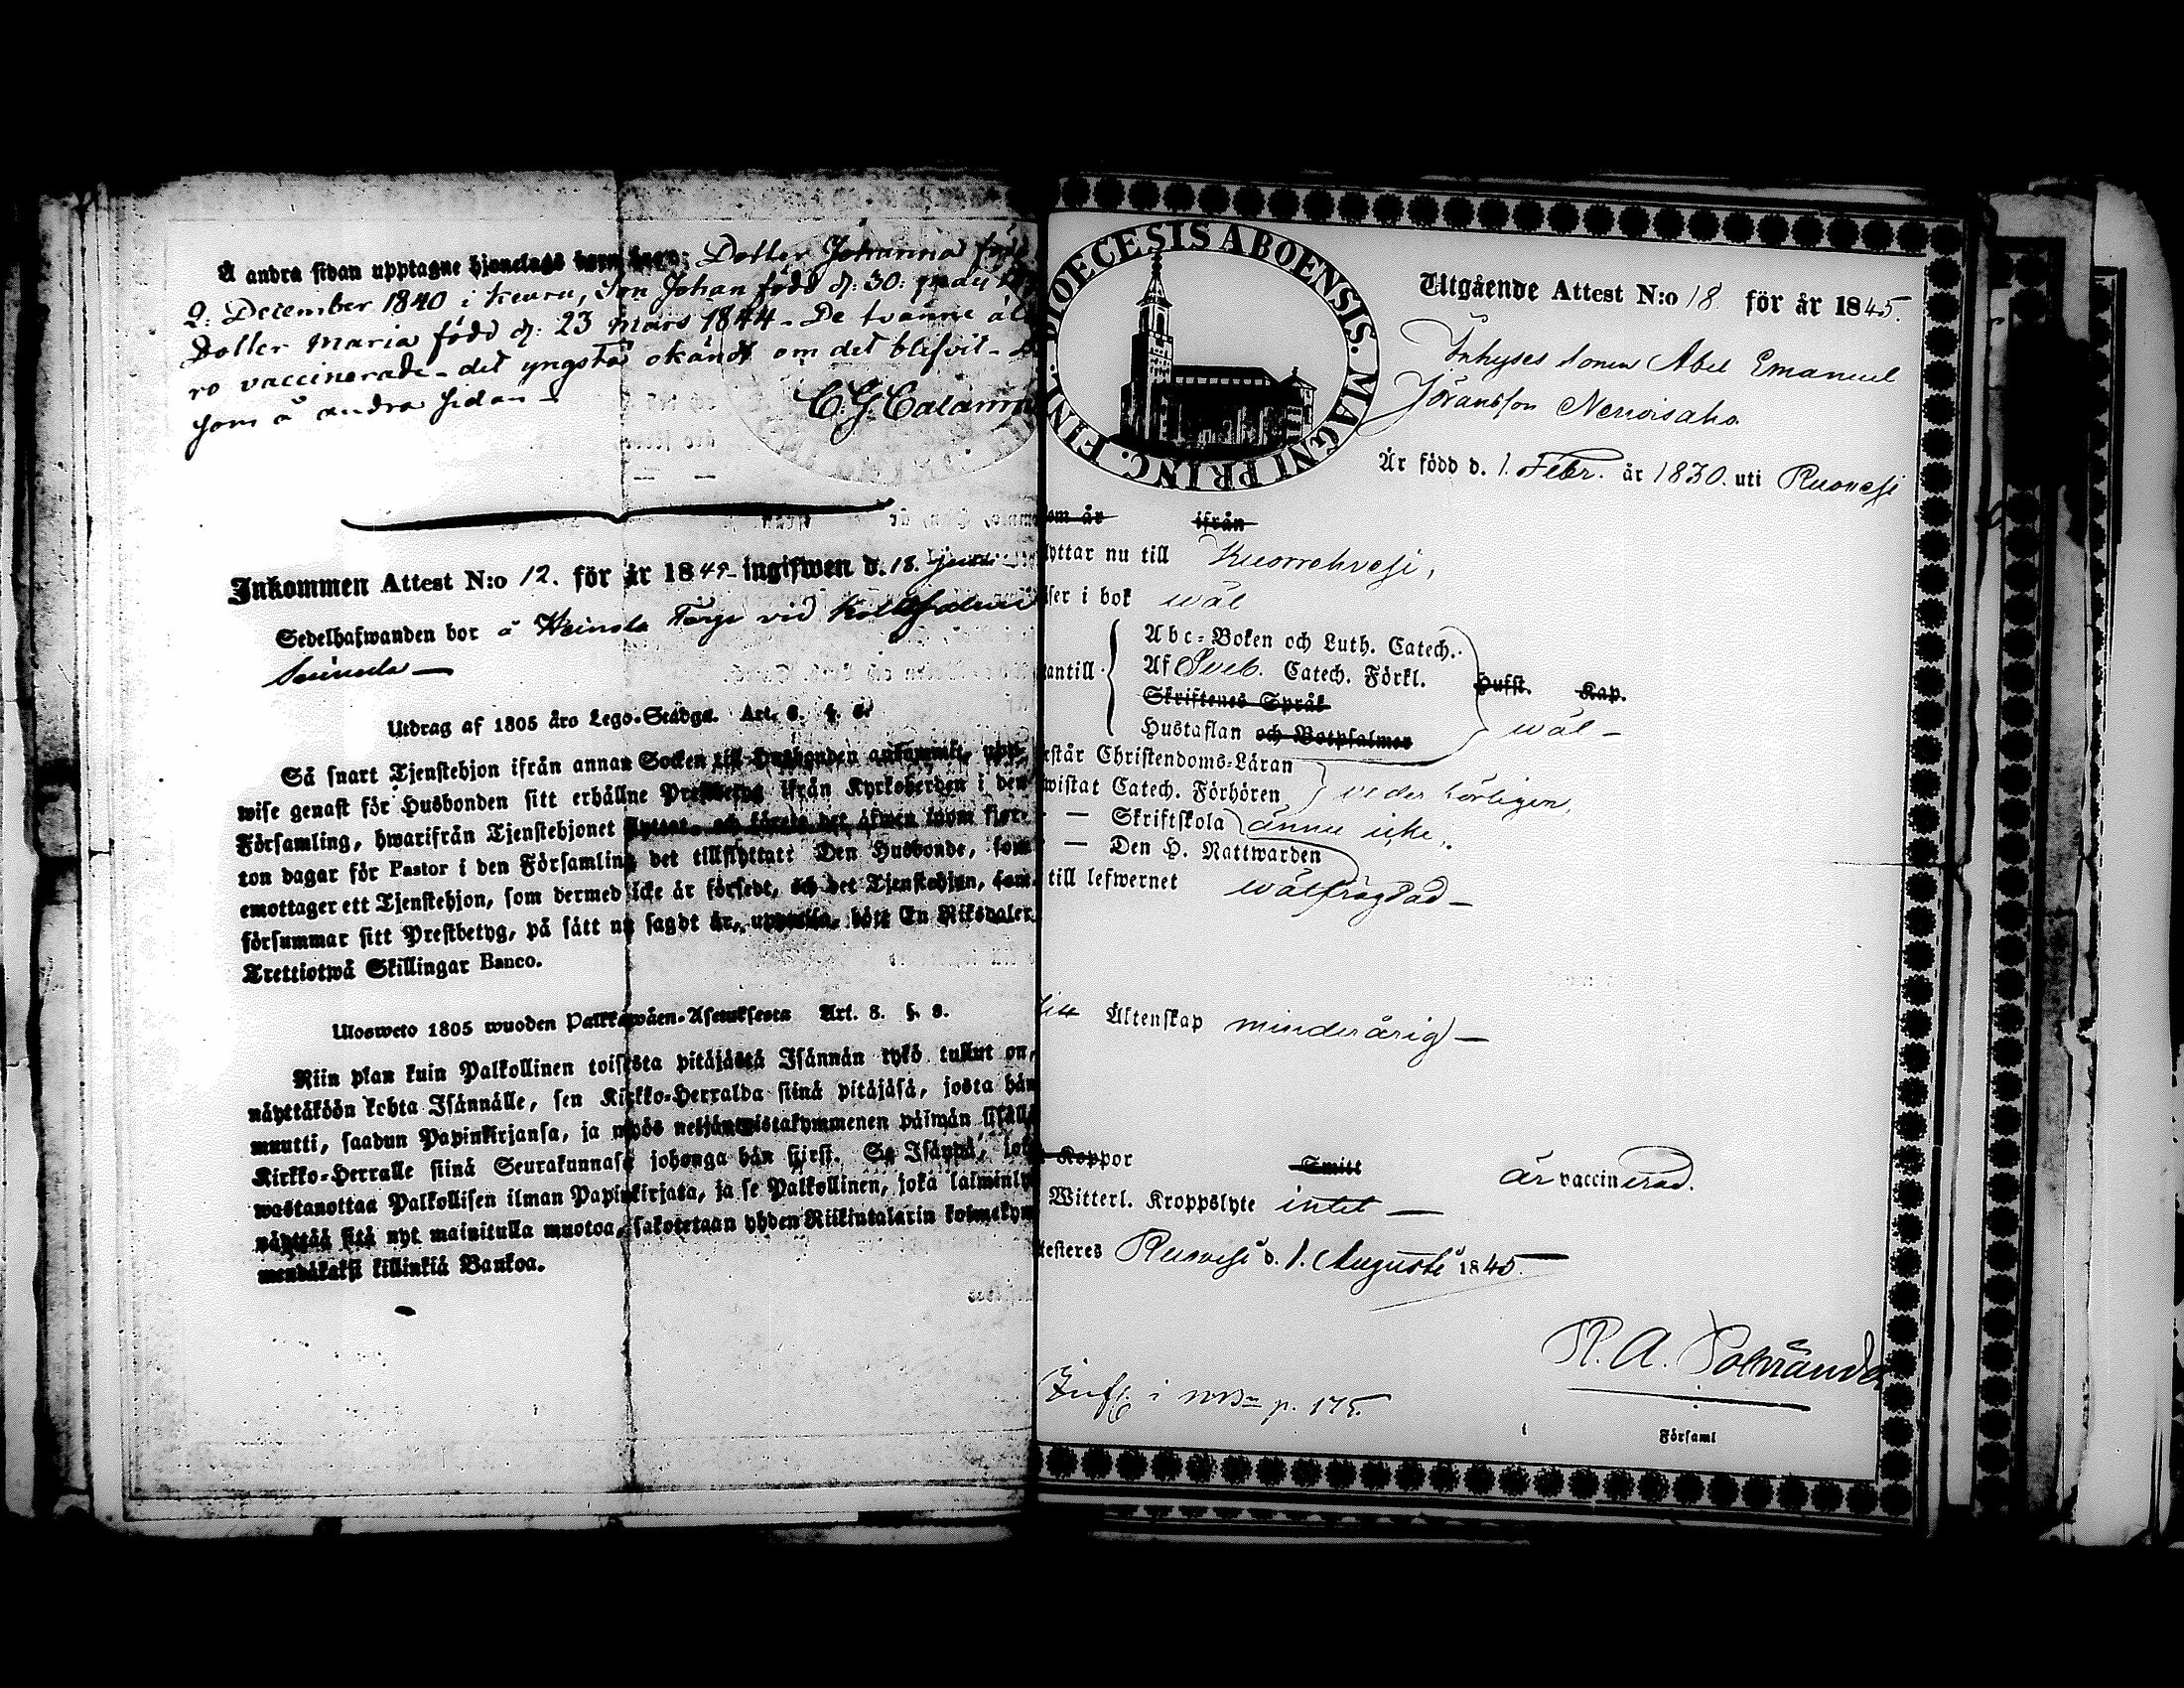 Å andra sidan upptagne hjonelags barn äro: Dotter Johanna född
2: December 1840 i Keuru, Son Johan född d: 30: maii
Dotter Maria född d: 23 Mars 1844 - De tvänne äl
ro vaccinerade - det yngsta okändt om det blifvit -
som å andra sidan -
C. G. Calamn
Inkommen Attest N:o 12. för år 184 ingifwen d. 18. Junii
Sedelhafwanden bor å Heinola Torp vid
Seinola —
Utdrag af 1805 års Lego-Stadga. Art. 8. §. 8.
Så snart Tjenstehjon ifrån annan Socken till Husbonden ankommit, upp-
wise genast för Husbonden sitt erhållne Prestbetyg ifrån Kyrkoherden i den
Församling, hwarifrån Tjenstehjonet flyttat, och förete det äfwen inom fjor-
ton dagar för Pastor i den Församling det tillflyttat: Den Husbonde, som
emottager ett Tjenstehjon, som dermed icke är försedt, och det Tjenstehjon, som
försummar sitt Prestbetyg, på sätt nu sagdt är, uppwisa, böte En Riksdaler
Trettiotwå Skillingar Banco.
Ulosweto 1805 wuoden Palkkawäen-Asetuksesta Art. 8. §. 8.
Niin pian kuin Palkollinen toisesta pitäjästä Isännän tykö tullut on,
näyttäköön kohta Isännälle, sen Kirkko-Herralda siinä pitäjäsä, josta hän
muutti, saadun Papinkirjansa, ja myös neljäntoistakymmenen päiwän sisällä
Kirkko-Herralle siinä Seurakunnasa johonga hän siirsi. Se Isändä, jok
wastanottaa Palkollisen ilman Papinkirjata, ja se Palkollinen, joka laiminly
näyttää sitä nyt mainitulla muotoa, sakotetaan yhden Riikintalarin kolmekym
mendäkaksi killinkiä Bankoa.
DIOECESIS ABOENSIS. MAGNI PRINC. FINL.
Utgående Attest N:o 18 för år 1845.
Inhyses sonen Abel Emanuel
Göransson Nervoisaho
Är född d. 1. Febr. år 1830. uti Ruovesi
om är ifrån
lyttar nu till Kuorrehvesi,
äser i bok wäl
Abc-Boken och Luth. Catech.
antill Af Sveb. Catech. Förkl. Hufst. Kap.
Skriftenes Språk
Hustaflan och Botpsalmer wäl —
rstår Christendoms-Läran
wistat Catech. Förhören vederbörligen,
— Skriftskola ännu icke.
— Den H. Nattwarden
till lefwernet wälfrägdad —
Äktenskap minderårig —
Koppor Smitt är vaccinerad.
Witterl. Kroppslyte intet —
testeres Ruovesi d. 1. Augusti 1845.
R. A. Polviander
Inf. i MB p. 175.
Församl